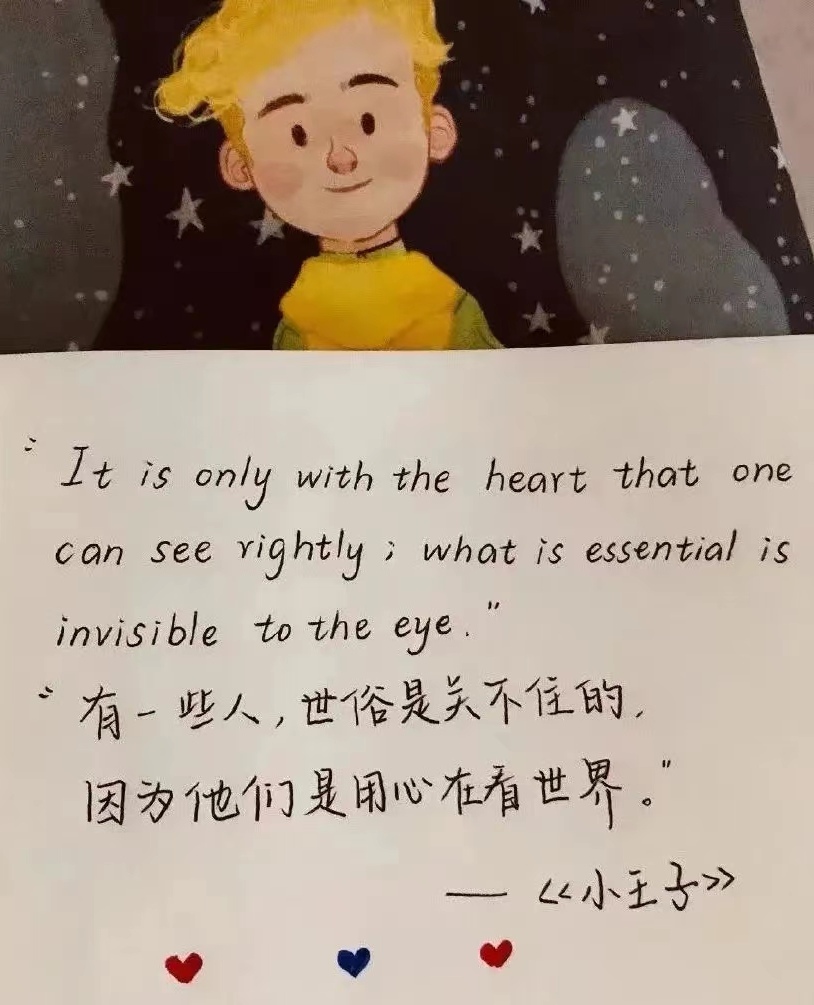 "It is only with the heart that one
can see rightly; what is essential is
invisible to the eye."
"有一些人,世俗是关不住的,
因为他们是用心在看世界。"
— 《小王子》